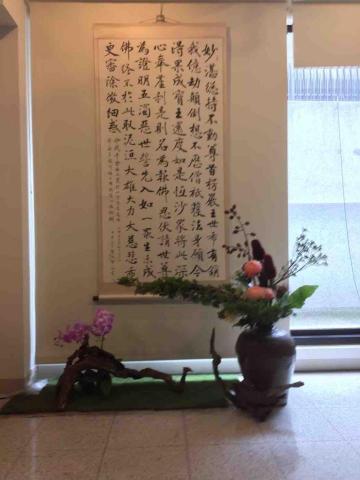 妙湛總持不動尊首楞嚴王世希有銷
我億劫顛倒想不歷僧祇獲法身願今
得果成寶王還度如是恆沙眾將此深
心奉塵剎是則名為報佛恩伏請世尊
為證明五濁惡世誓先入如一眾生未成
佛終不於此取泥洹大雄大力大慈悲希
更審除微細惑